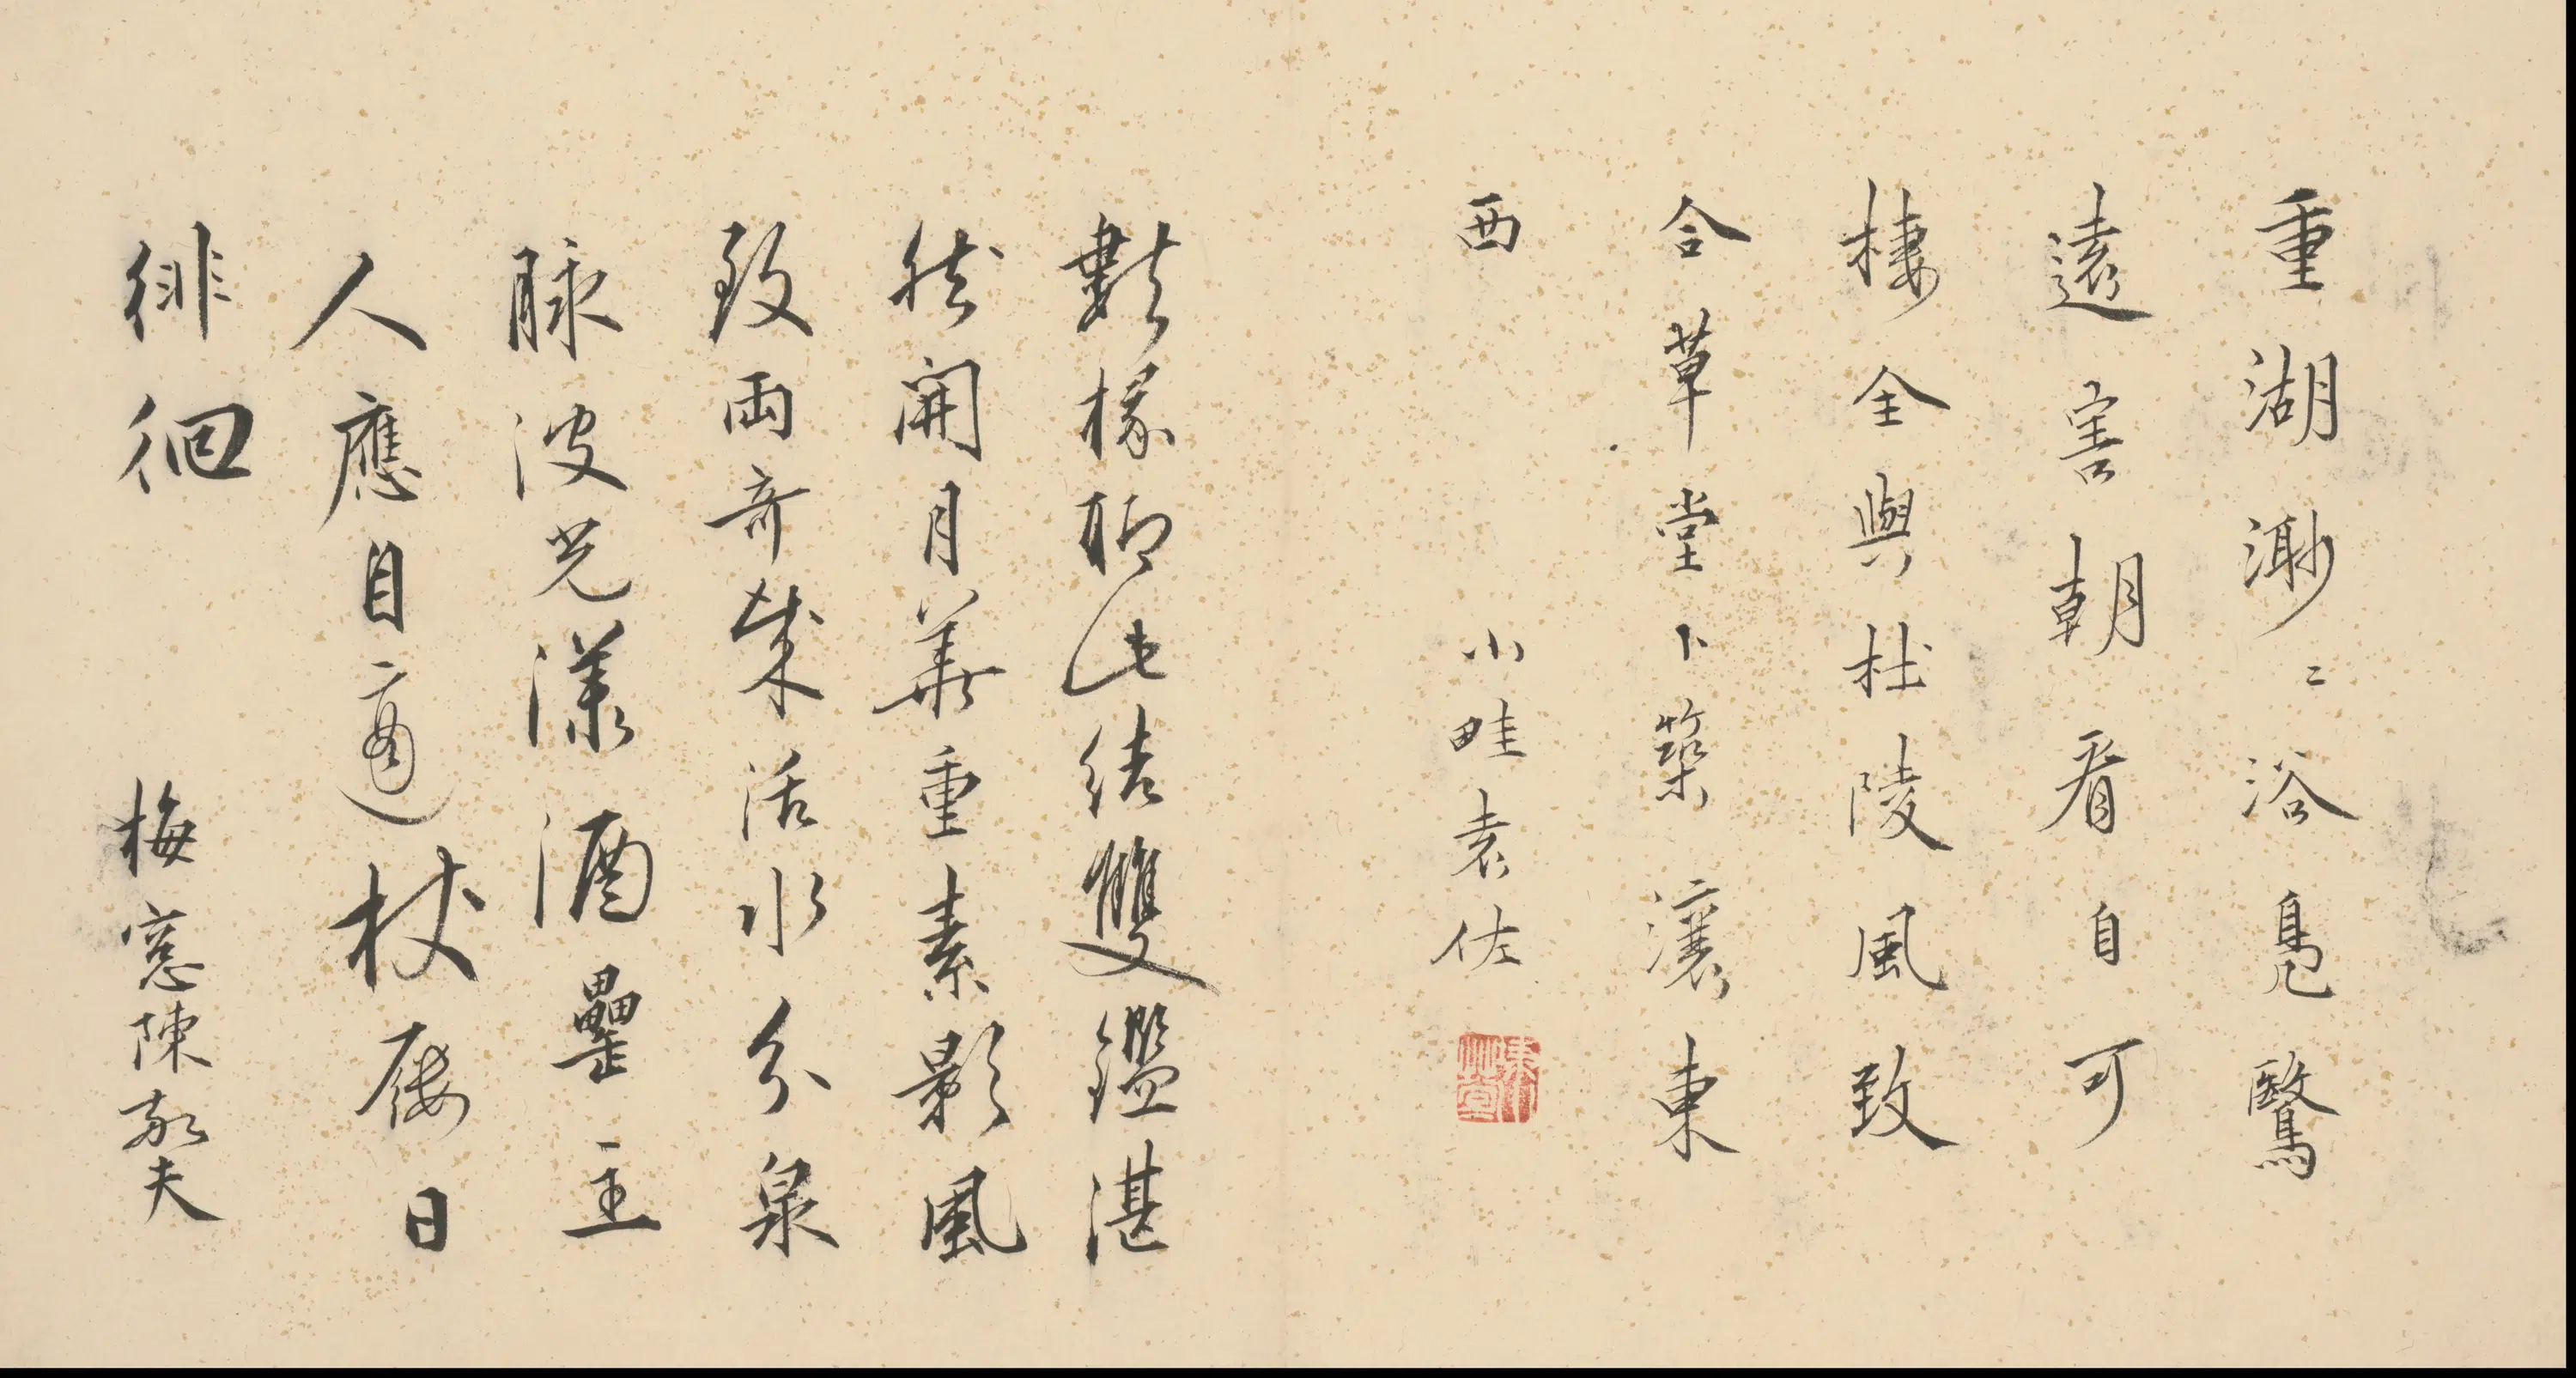 重湖渺〻浴鳧鷖
遠害朝看自可
棲全與杜陵風致
合草堂卜築瀼東
西
小畦袁佐
數椽聊此結雙鑑湛
然開月華重素影風
致兩奇哉活水分泉
脉波光漾酒罍主
人應自適杖屨日
徘徊
梅窓陳敬夫